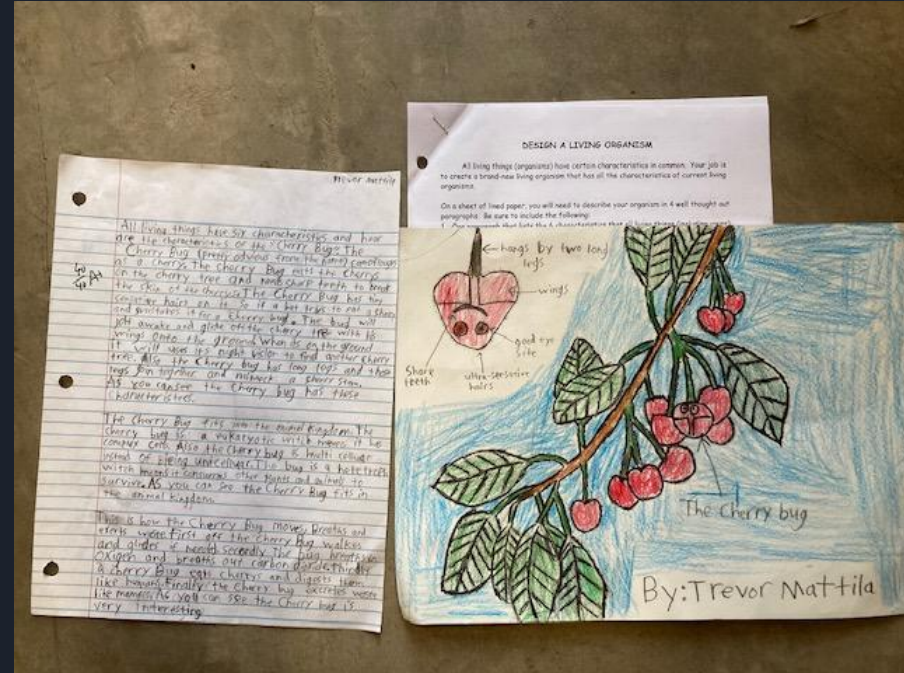 Trevor Mattila
40
40 A+
All living things have six characteristics and hear
are the characteristics of the "Cherry Bug". The
Cherry Bug (pretty obvious from the name)
a cherry. The cherry Bug eats the cherrys
on the cherry tree and needs sharp teeth to break
the skin of the The Cherry Bug has tiny
hairs on it so if a
it for a cherry bug. The bug will
awake and glide off the cherry tree with its
wings onto the ground when its on the ground
it will use its night vision to find another cherry
tree. Also the Cherry Bug has long legs and those
legs join together and a cherry stem.
As you can see the Cherry bug has these
characteristics.
The Cherry Bug fits into the animal kingdom. The
cherry bug is a witch means it
complex cells. Also the Cherry bug is multi
insted of being The bug is a
witch means it consumes other plants and animals to
survive. As you can see the Cherry Bug fits in
the animal kingdom.
This is how the Cherry Bug moves, and
First off the Cherry Bug walkes
and glides if needed secondly The bug
oxigen and breaths out carbon thirdly
a cherry Bug eats cherrys and digests them
like humans. Finally the Cherry bug excretes
like As you can see the Cherry bug is
very
DESIGN A LIVING ORGANISM
All living things (organisms) have certain characteristics in common. Your job is
to create a brand-new living organism that has all the characteristics of current living
organisms.
On a sheet of lined paper, you will need to describe your organism in 4 well thought out
paragraphs. Be sure to include the following:
hangs by two long
legs
wings
good eye
site
Sharp
teeth
ultra-sensative
hairs
The Cherry bug
By:Trevor Mattila